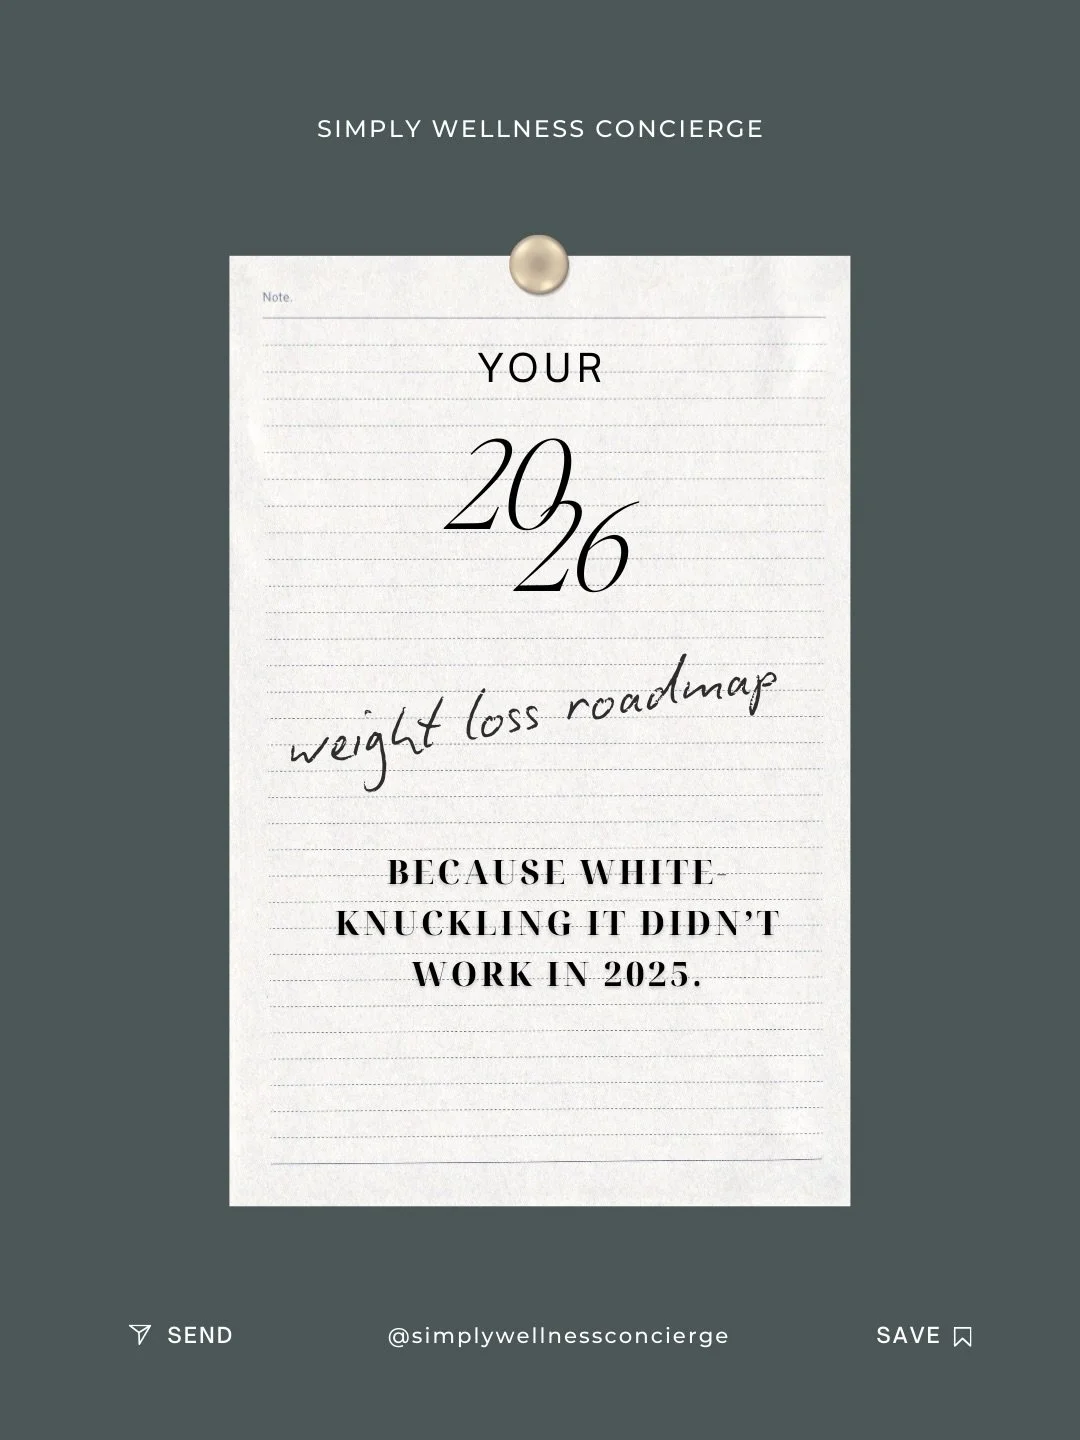 SIMPLY WELLNESS CONCIERGE
Note.
YOUR
20
26
weight loss roadmap
BECAUSE WHITE-
KNUCKLING IT DIDN'T
WORK IN 2025.
SEND
@simplywellnessconcierge
SAVE